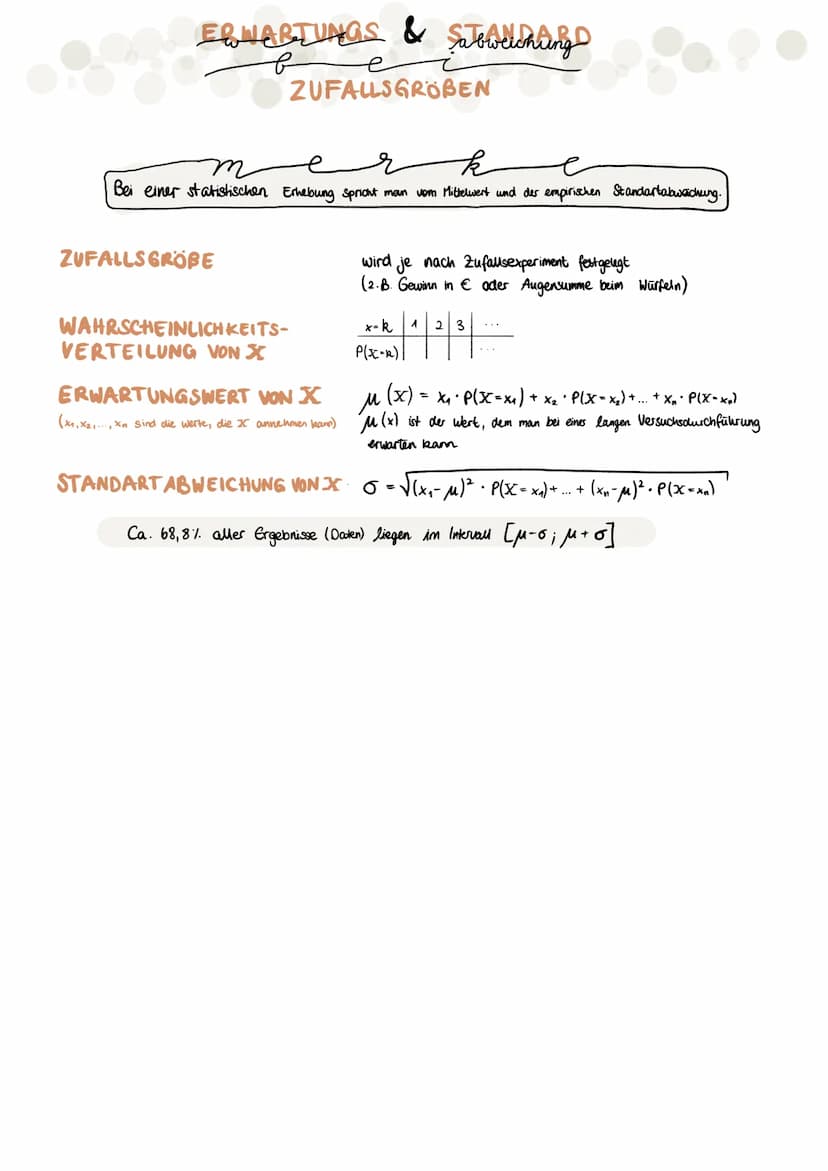 ERWARTUNGS & STANDARD
werte abweichung
bei
ZUFALLSGRÖßEN
merke
Bei einer statistischen Erhebung spricht man vom Mittelwert und der empirischen Standartabweichung.
ZUFALLSGRÖßE
wird je nach Zufallsexperiment festgelegt
(z.B. Gewinn in € oder Augensumme beim Würfeln)
WAHRSCHEINLICHKEITS-
VERTEILUNG VON X
x=k 1 2 3 ...
P(X=k) ...
ERWARTUNGSWERT VON X
(x₁,x₂,...,xₙ sind die Werte, die X annehmen kann)
μ(x) = x₁ · P(X=x₁) + x₂ · P(X=x₂) + ... + xₙ · P(X=xₙ)
μ(x) ist der Wert, dem man bei einer langen Versuchsdurchführung
erwarten kann
STANDARTABWEICHUNG VON X
σ = √(x₁-μ)² · P(X=x₁) + ... + (xₙ-μ)² · P(X=xₙ)
Ca. 68,8% aller Ergebnisse (Daten) liegen im Intervall [μ-σ; μ+σ]